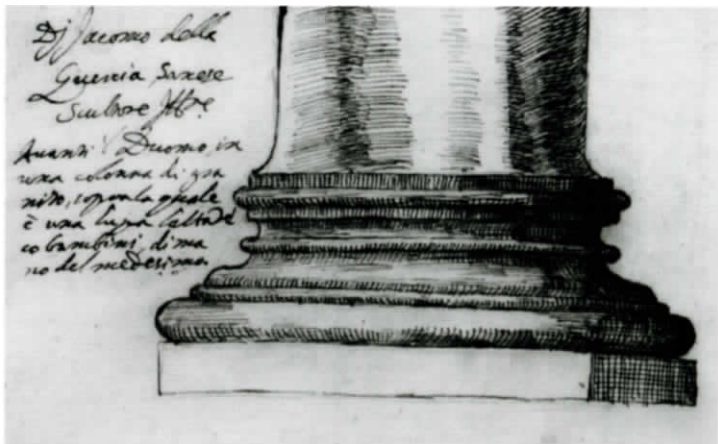 Di Jacomo della
Quercia Sanese
Scultore
Avanti l Duomo, in
una colonna di gra
nito, sopra la quale
è una lupa lattāte
co bambini, di ma
no del medesimo